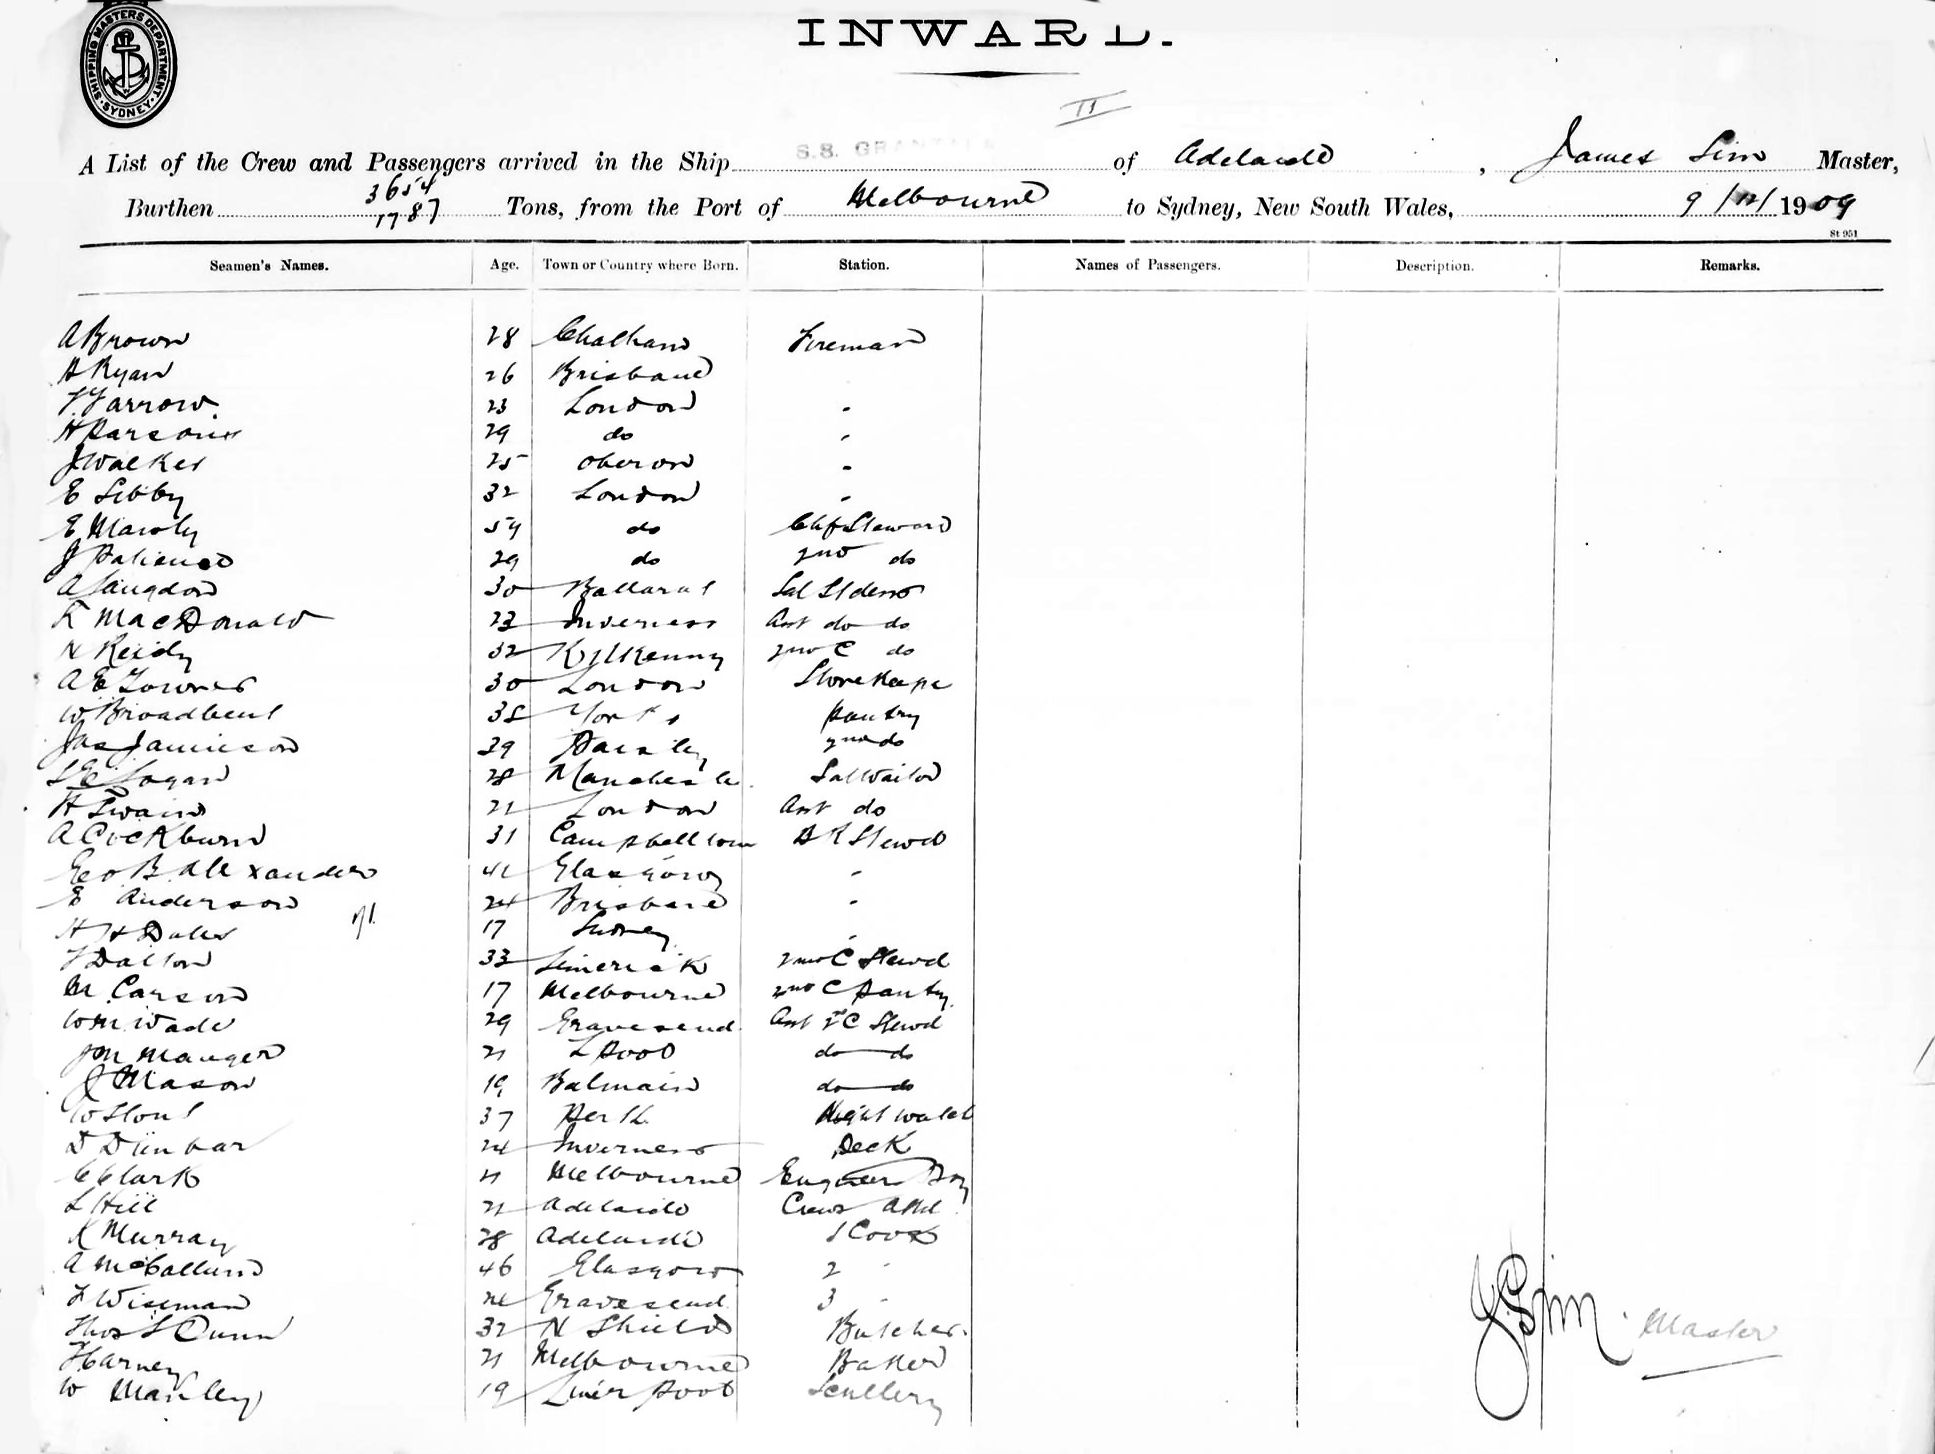 SHIPPING MASTERS DEPARTMENT
SYDNEY
INWARD.
II
A List of the Crew and Passengers arrived in the Ship S.S. GRANTALA of Adelaide, James Sim Master,
Burthen 3654 1787 Tons, from the Port of Melbourne to Sydney, New South Wales, 9/12/1909
St 951
Seamen's Names. Age. Town or Country where Born. Station. Names of Passengers. Description. Remarks.
A Brown 28 Chatham Fireman
H Ryan 26 Brisbane
F Farrow 23 London "
H Parsons 29 do "
J Walker 25 Oberon "
E Sibby 32 London "
E Manly 59 do Chf Steward
J Patience 29 do 2nd do
A Langdon 30 Ballarat Sal Stdess
K MacDonald 23 Inverness Asst do do
N Reidy 32 Kilkenny 2nd C do
A E Towner 30 London Storekeepr
W Broadbent 38 Yorks Pantry
Jas Jamieson 39 Paisley 2nd do
S E Logan 28 Manchester Sal Waiter
H Swain 22 London Asst do
A Cockburn 31 Campbelltown B R Stewd
Geo B Alexander 42 Glasgow "
E Anderson 24 Brisbane "
H H Dales 17 Sydney "
T Dalton 33 Limerick 2nd C Stewd
M Carson 17 Melbourne 2nd C Pantry
Wm Wade 29 Gravesend Asst 2nd C Stewd
Jn Manger 21 L Pool do do
J Mason 19 Balmain do do
W Stout 37 Perth Night watch
D Dunbar 24 Inverness Deck
C Clark 21 Melbourne Engineers Boy
L Hill 21 Adelaide Crews Attd
K Murray 28 Adelaide 1 Cook
A McCallum 46 Glasgow 2 "
F Wiseman 24 Gravesend 3 "
Thos S Dunn 32 N Shields Butcher
T Carney 21 Melbourne Baker
W Manley 19 Liverpool Scullery
J Sim Master